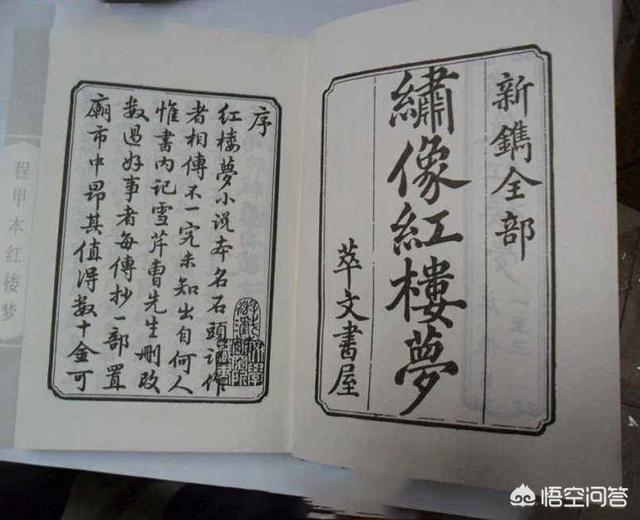 新鐫全部
繡像紅樓夢
萃文書屋
序
紅樓夢小說本名石頭記作
者相傳不一究未知出自何人
惟書內記雪芹曹先生刪改
数過好事者每傳抄一部置
廟市中昂其值得数十金可
程甲本红楼梦
悟空问答